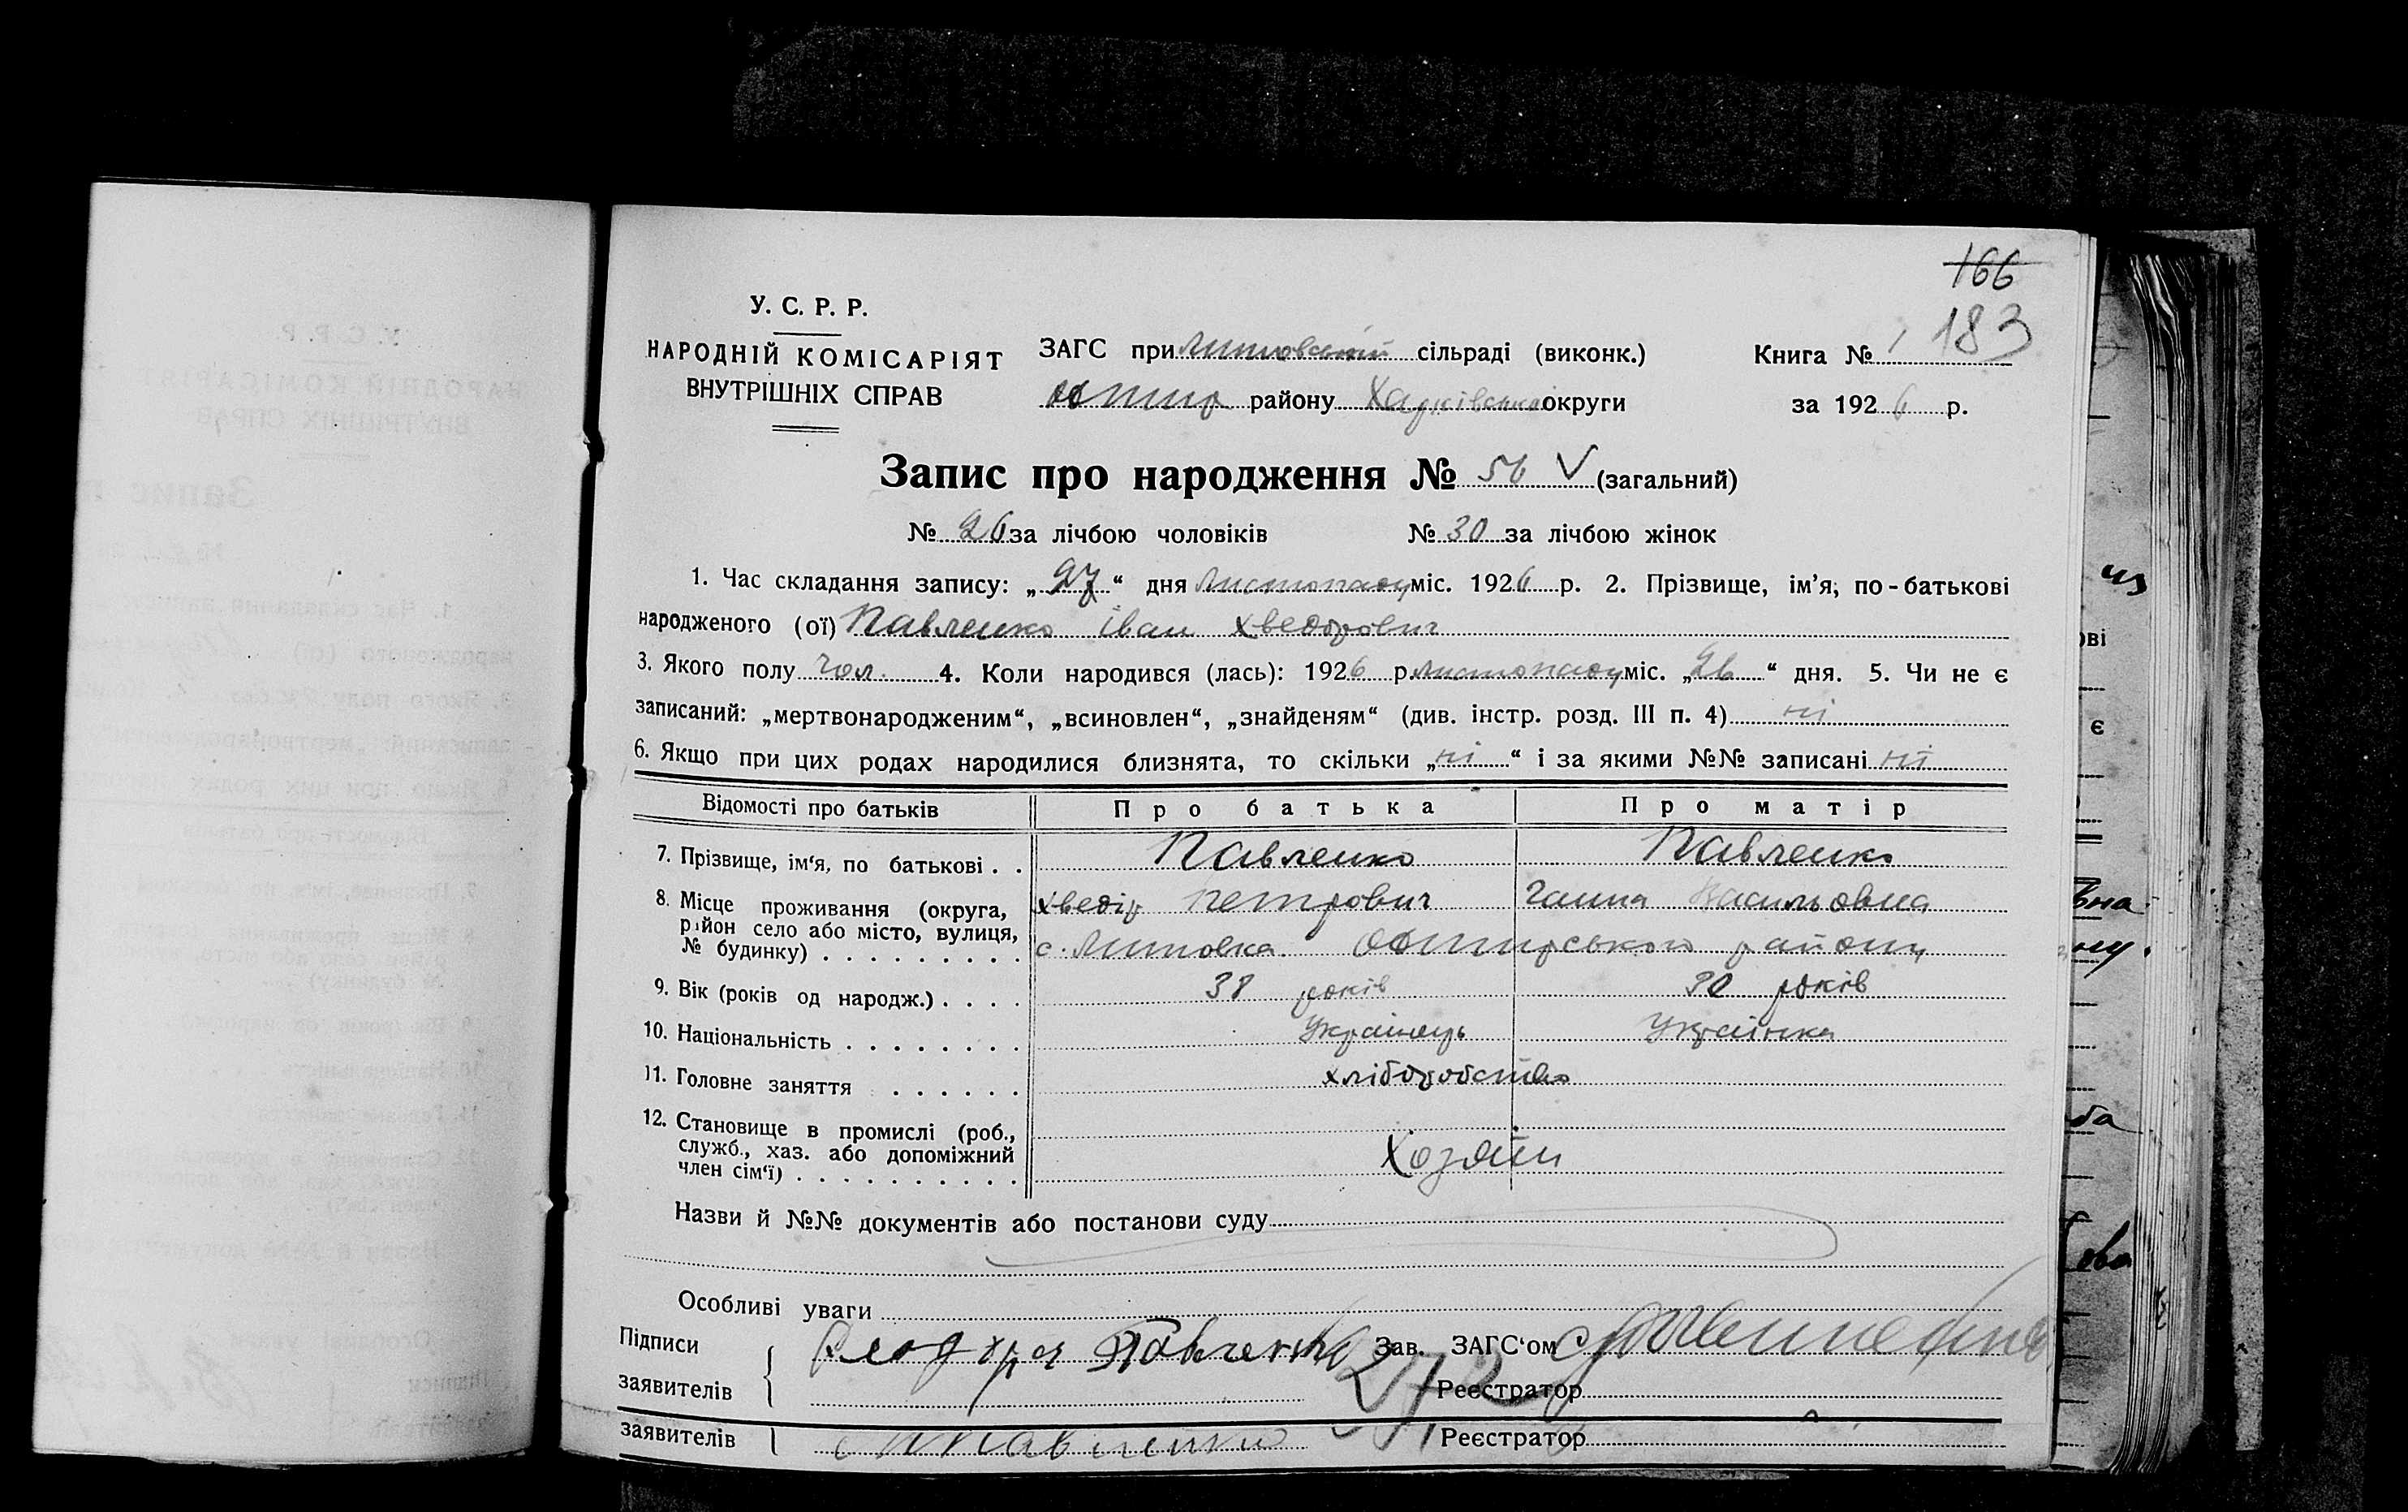 166
183
У. С. Р. Р.
НАРОДНІЙ КОМІСАРІЯТ
ВНУТРІШНІХ СПРАВ
ЗАГС при Лютовській сільраді (виконк.)
району Харківської округи
Книга № 1
за 1926 р.
Запис про народження № 56 V (загальний)
№ 26 за лічбою чоловіків № 30 за лічбою жінок
1. Час складання запису: „27“ дня листопаду міс. 1926 р. 2. Прізвище, ім’я, по-батькові
народженого (ої) Павленко Іван Хведорович
3. Якого полу чол. 4. Коли народився (лась): 1926 р. листопаду міс. „26“ дня. 5. Чи не є
записаний: „мертвонародженим“, „всиновлен“, „знайденям“ (див. інстр. розд. III п. 4) ні
6. Якщо при цих родах народилися близнята, то скільки „ні“ і за якими №№ записані ні
Відомості про батьків Про батька Про матір
7. Прізвище, ім‘я, по батькові . . Павленко Павленко
Хведір Петрович Ганна Васильовна
8. Місце проживання (округа,
район село або місто, вулиця,
№ будинку) . . . . . . . . . с. Лютовка. району
9. Вік (років од народж.) . . . . 38 років 30 років
10. Національність . . . . . . . . Українець Українка
11. Головне заняття . . . . . . хліборобство
12. Становище в промислі (роб.,
служб., хаз. або допоміжний
член сім‘ї) . . . . . . . . . . Хозяїн
Назви й №№ документів або постанови суду
Особливі уваги
Підписи
заявителів
Павленко
Зав. ЗАГС‘ом
Реєстратор
заявителів Павленко Реєстратор